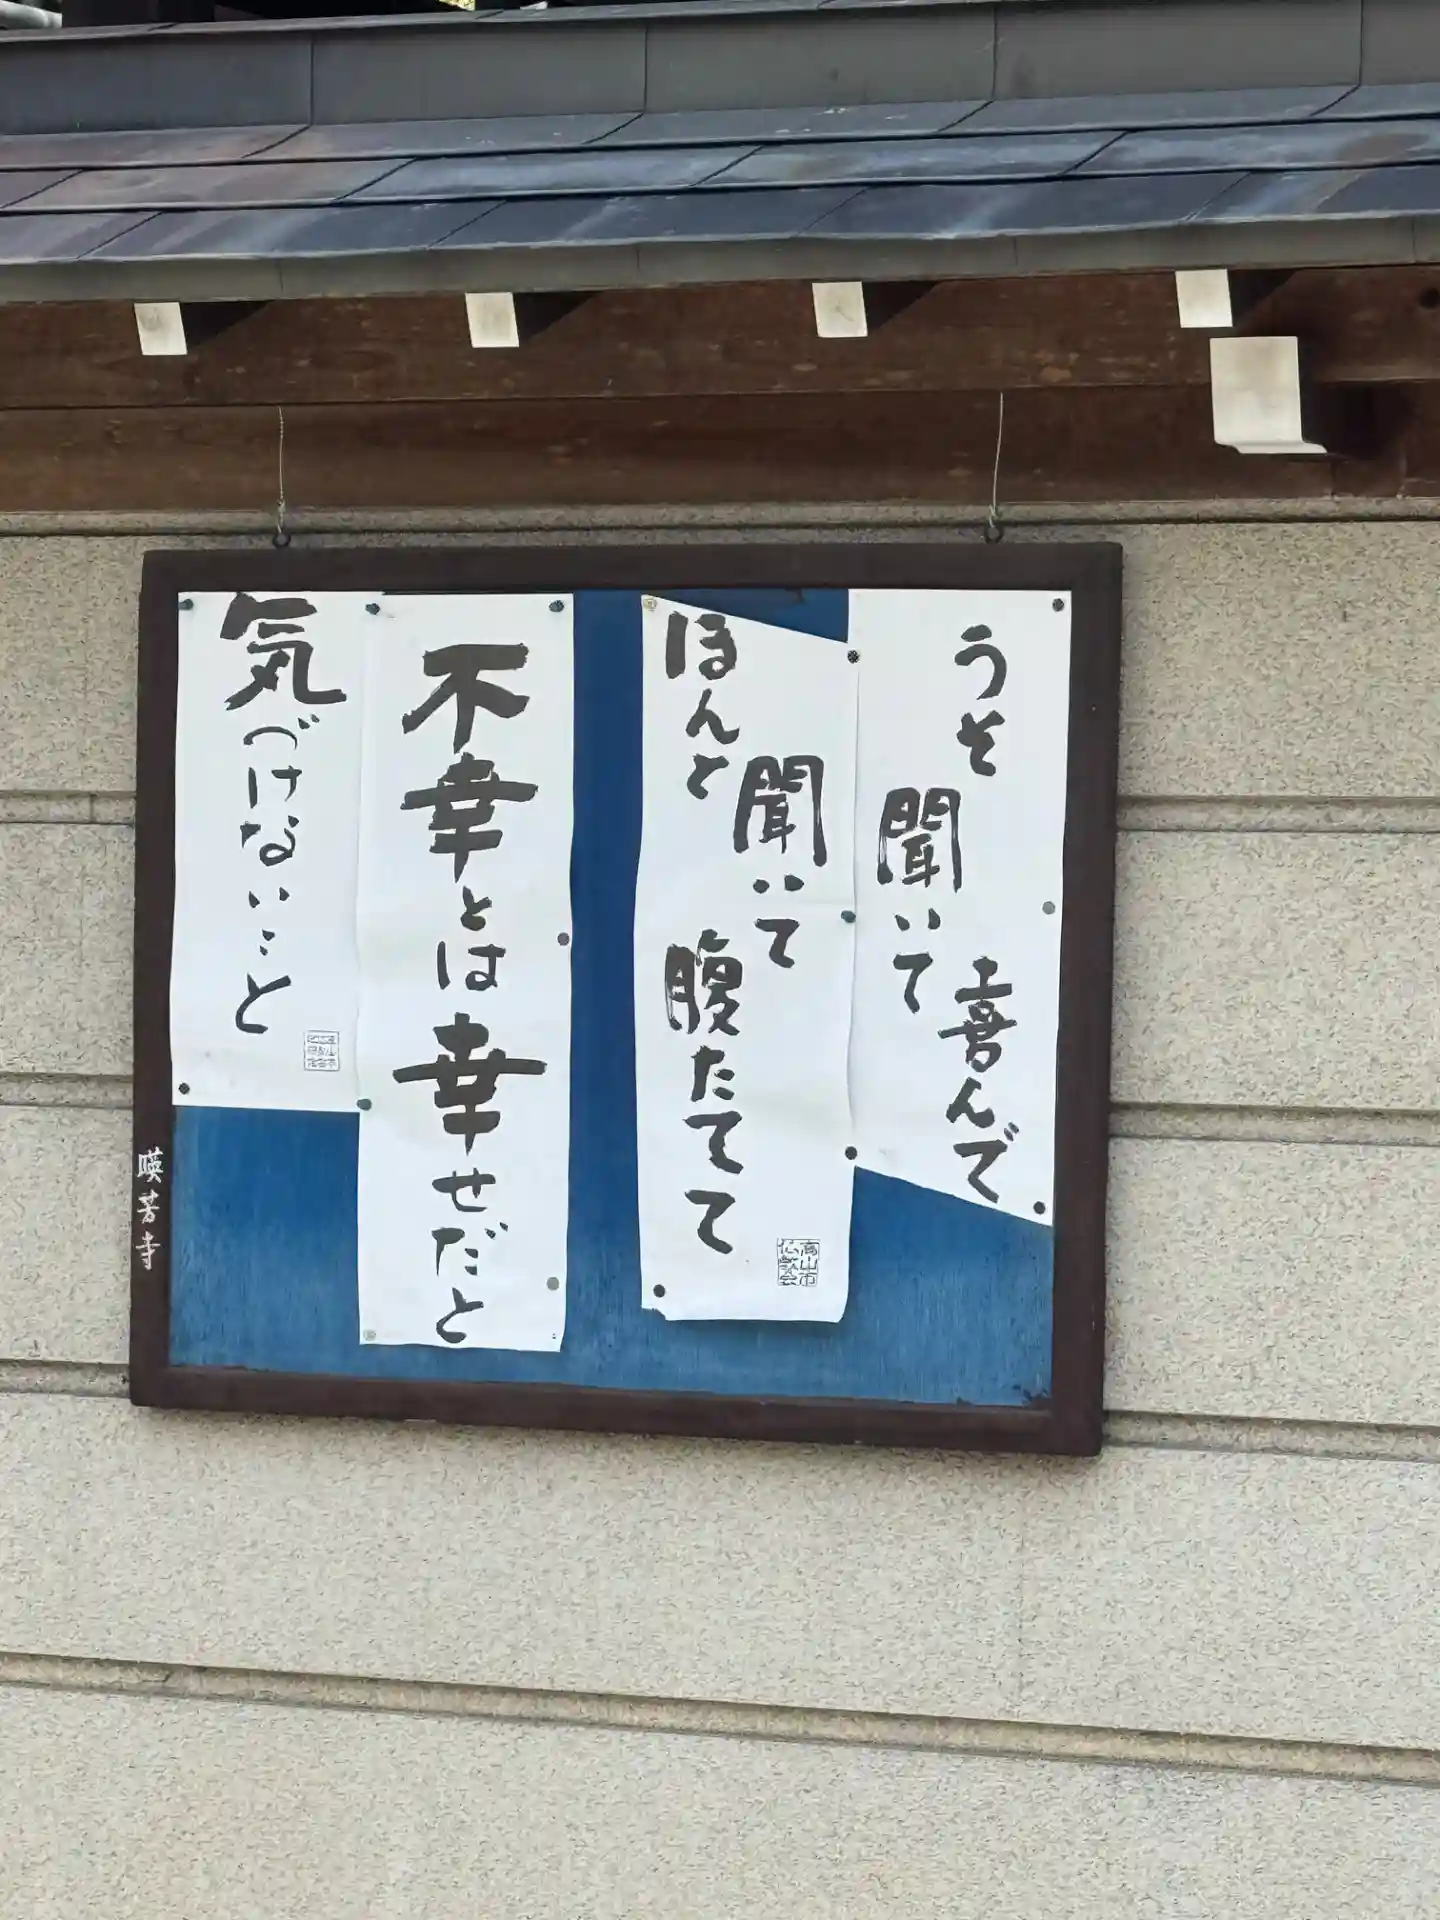 うそ
聞いて
喜んで
ほんと
聞いて
腹たてて
高山市
仏教会
不幸とは幸せだと
気づけないこと
暎芳寺